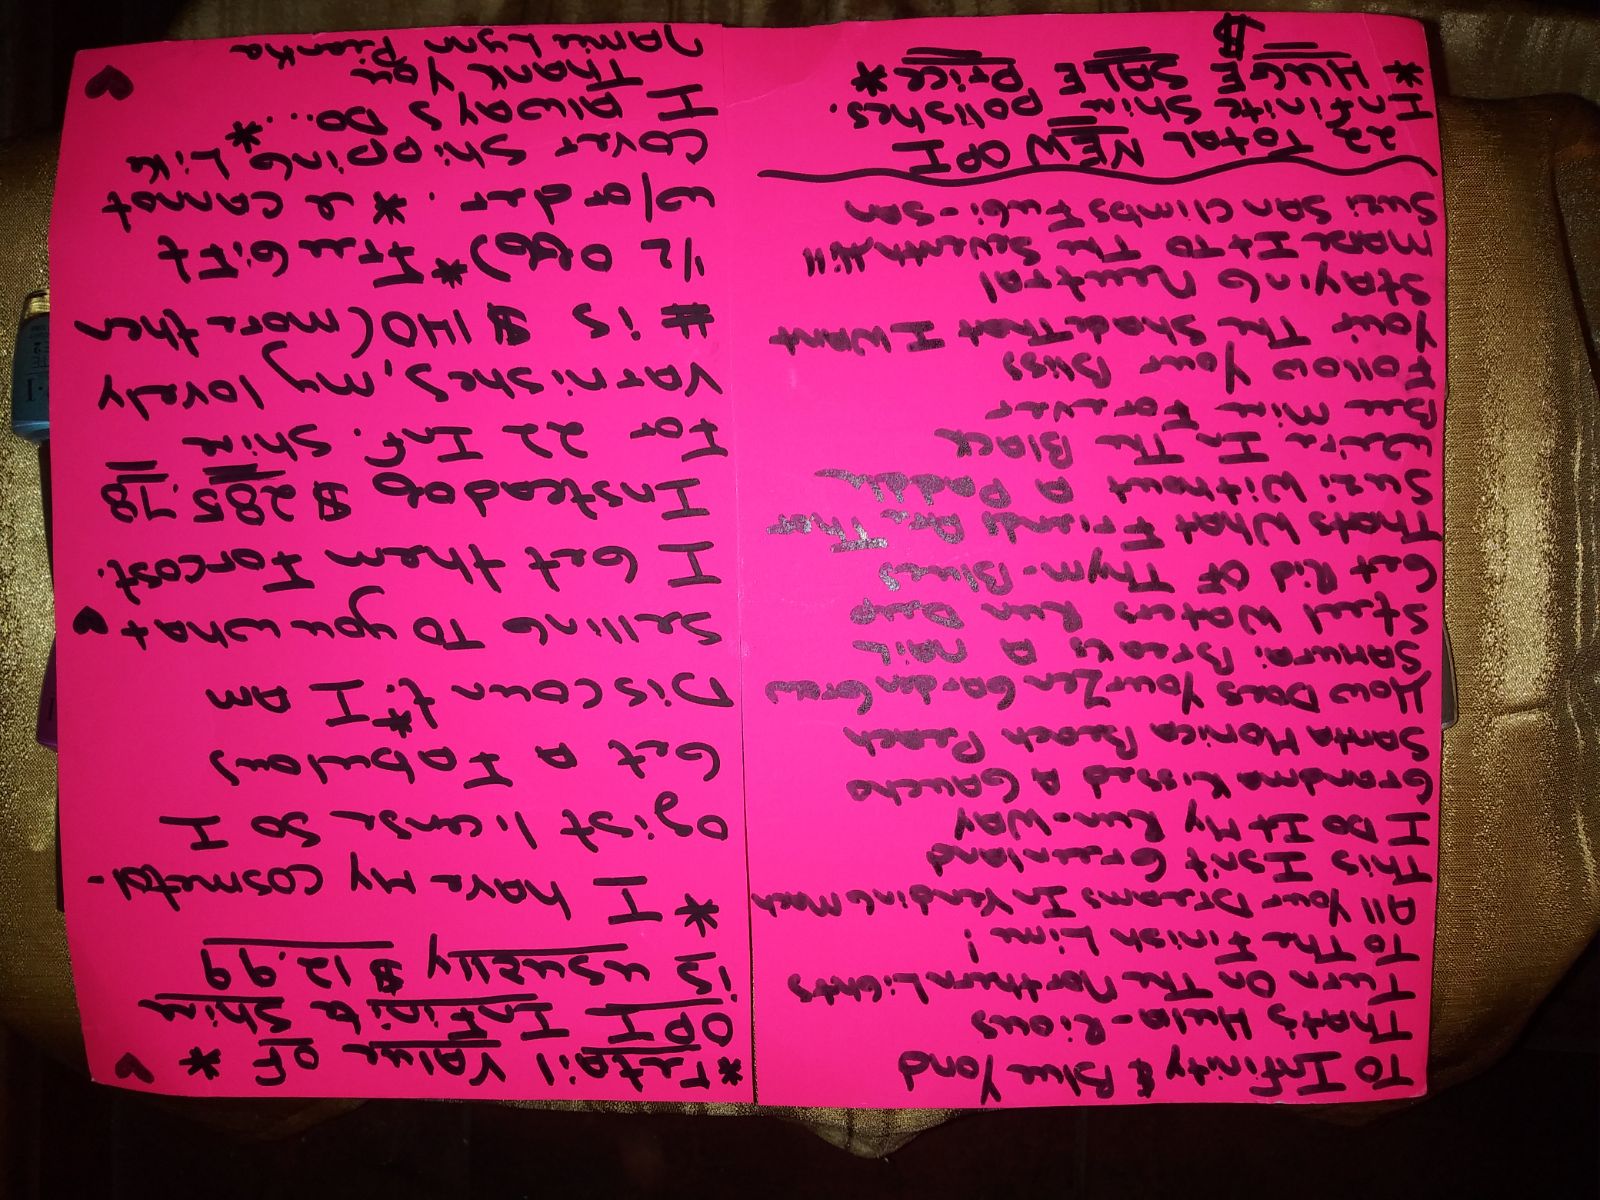 TO Infinity & Blue Yond
That's Hula-Rious
Turn On The Northern Lights
To The Finish Lime!
All Your Dreams In Vending Mach
This Isn't Greenland
I DO It My Run-Way
Grandma Kissed a Gaucho
Santa Monica Beach Peach
How Does Your Zen Garden Grow
Samurai Breaks a Nail
Steel Waters Run Deep
Get Rid OF Thym-Blues
Thats What Friends Are Thor
Suzi Without a Paddle
We're In The Black
Be Mine Forever
Follow Your Bliss
Your The Shade That I Want
Staying Neutral
Made It TO The Seventh Hill
Suzi San Climbs Fuji-San
22 TOTAL NEW OPI
Infinite Shine polishes.
* HUGE SALE Price *
$
*Retail Value OF *
OPI Infinite Shine
is usually $12.99
* I have my cosmetol-
ogist license so I
Get a Fabulous
Discount. *I am
Selling TO you what
I Get them For cost.
Instead of $285.78
For 22 Inf. Shine
Varnishes, my lovely
# is $140 (more then
1/2 off) *Free Gift
w/order. *& cannot
Cover shipping Like
I always DO...*
THANK You
Jamie Lynn Pianka